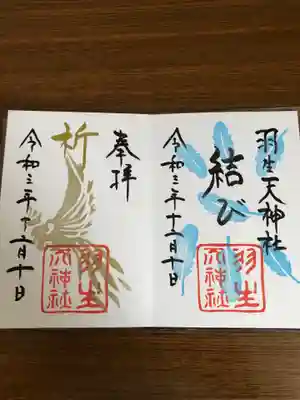 羽生天神社
結び
令和三年十二月十日
羽生
天神社
奉拝
祈
令和三年十二月十日
羽生
天神社